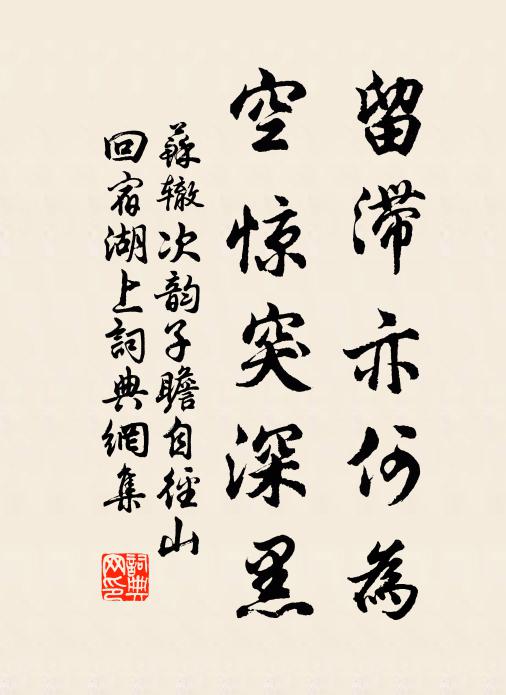 留滞亦何為
空惊突深黑
蘇辙次韵子瞻自徑山
回宿湖上詞典網集
詞典网印